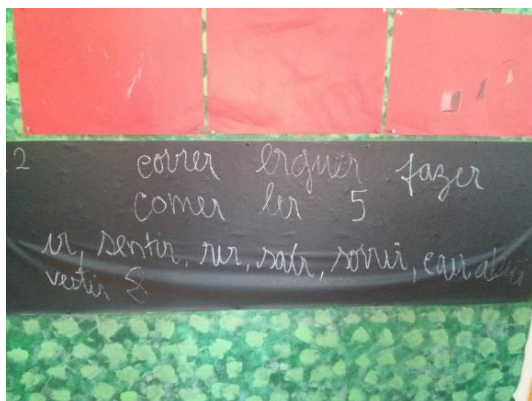 2 correr erguer fazer
comer ler 5
ir, sentir, rir, sair, sorrir, cair, abrir
vestir 8